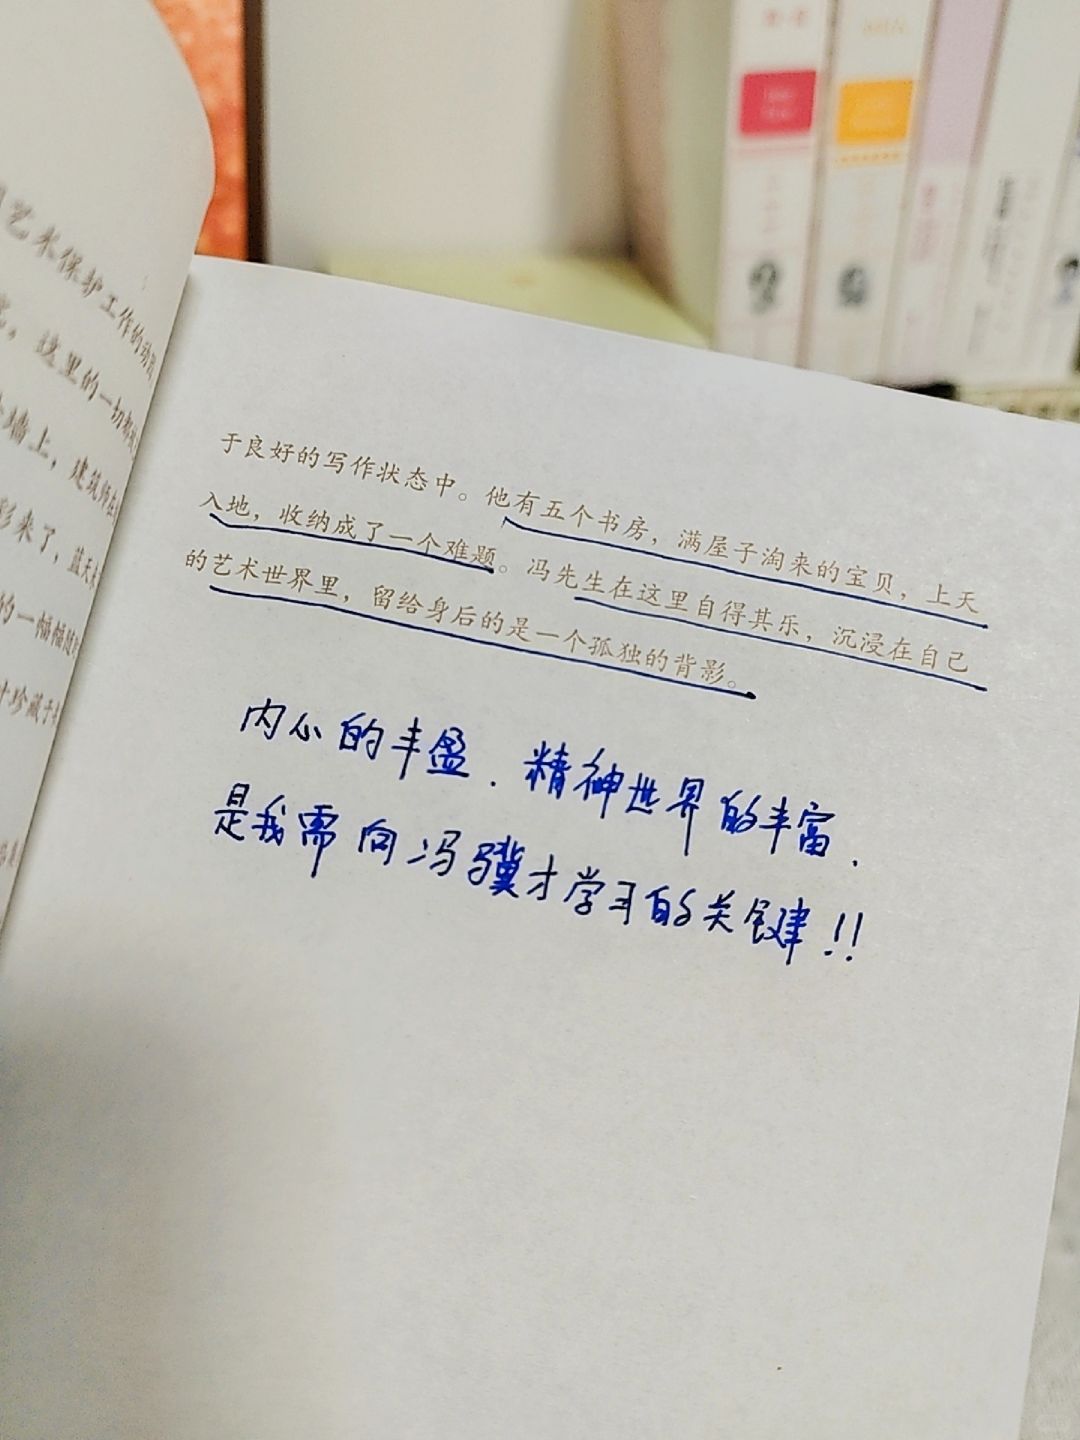 艺术保护工作的动
，这里的一切都
墙上，建筑师在
彩来了，蓝天
的一幅幅
珍藏于
于良好的写作状态中。他有五个书房，满屋子淘来的宝贝，上天
入地，收纳成了一个难题。冯先生在这里自得其乐，沉浸在自己
的艺术世界里，留给身后的是一个孤独的背影。
内心的丰盈．精神世界的丰富．
是我需向冯骥才学习的关键!!